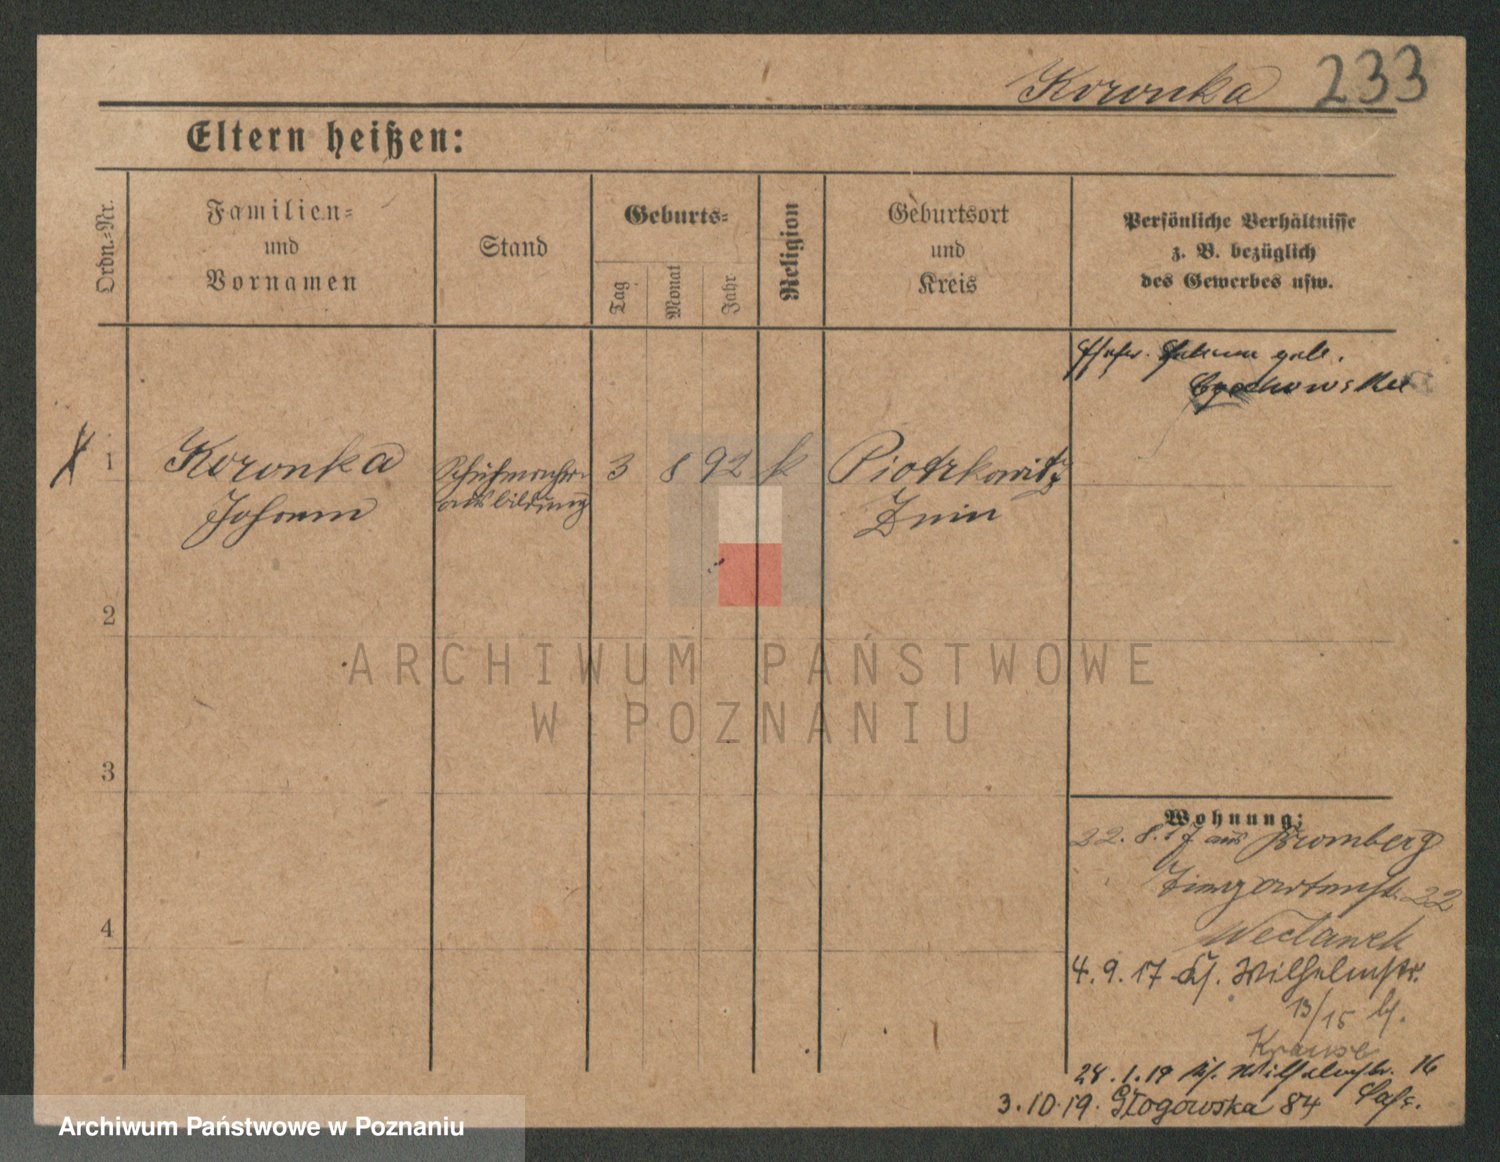 Koronka 233
Eltern heißen:
Ordn.=Nr.
Familien=
und
Vornamen
Stand
Geburts=
Tag
Monat
Jahr
Religion
Geburtsort
und
Kreis
Persönliche Verhältnisse
z. B. bezüglich
des Gewerbes usw.
1 Koronka 3 8 92 k Piotrkowitz
Johann ausbildung Znin
2
3
4
Wohnung:
22. 8. 17 aus Bromberg
22
4. 9. 17 Wilhelmstr.
13/15 b.
Krause
28. 1. 19 Wilhelmstr. 16
3. 10. 19. Głogowska 84
ARCHIWUM PAŃSTWOWE
W POZNANIU
Archiwum Państwowe w Poznaniu